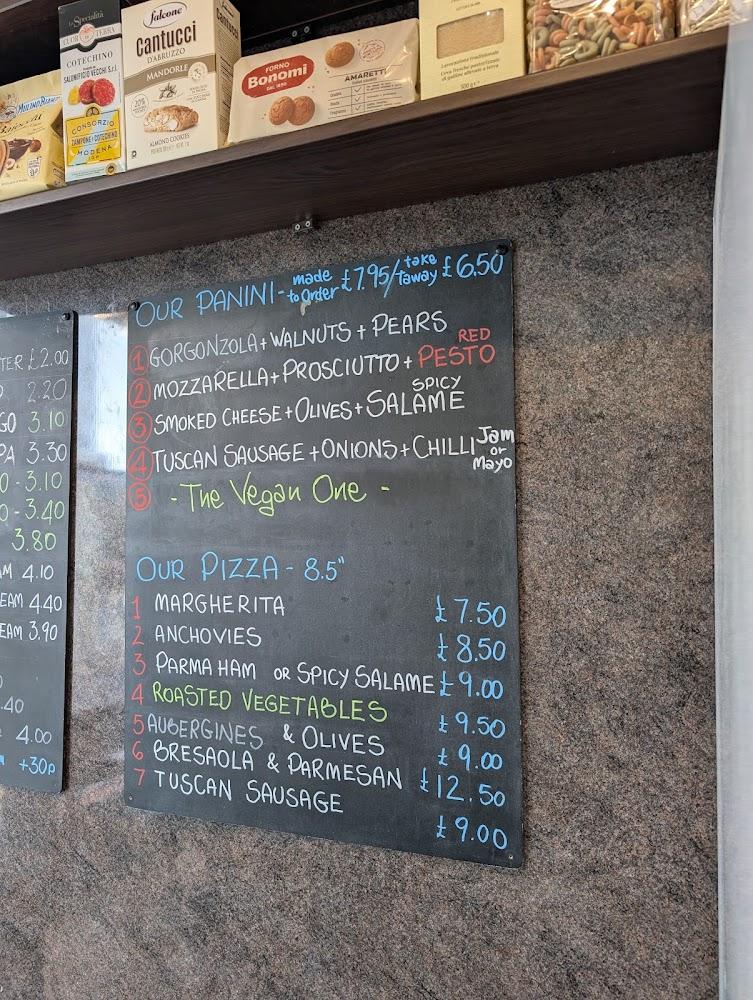 le Specialità
CUOR DI TERRA
COTECHINO
SALUMIFICIO VECCHI S.r.l.
CONSORZIO
ZAMPONE e COTECHINO
MODENA
I.G.P.
Falcone
Cantucci
D'ABRUZZO
MANDORLE
20%
ALMOND COOKIES
FORNO
Bonomi
DAL 1850
AMARETTI
Lavorazione tradizionale
500 g
OUR PANINI - made to order £7.95 / take away £6.50
1 GORGONZOLA + WALNUTS + PEARS
2 MOZZARELLA + PROSCIUTTO + RED PESTO
3 SMOKED CHEESE + OLIVES + SPICY SALAME
4 TUSCAN SAUSAGE + ONIONS + CHILLI Jam or Mayo
5 - The Vegan One -
OUR PIZZA - 8.5"
1 MARGHERITA £7.50
2 ANCHOVIES £8.50
3 PARMA HAM OR SPICY SALAME £9.00
4 ROASTED VEGETABLES £9.50
5 AUBERGINES & OLIVES £9.00
6 BRESAOLA & PARMESAN £12.50
7 TUSCAN SAUSAGE £9.00
TER £2.00
2.20
GO 3.10
PA 3.30
0 - 3.10
0 - 3.40
3.80
AM 4.10
EAM 4.40
EAM 3.90
.40
4.00
+30p